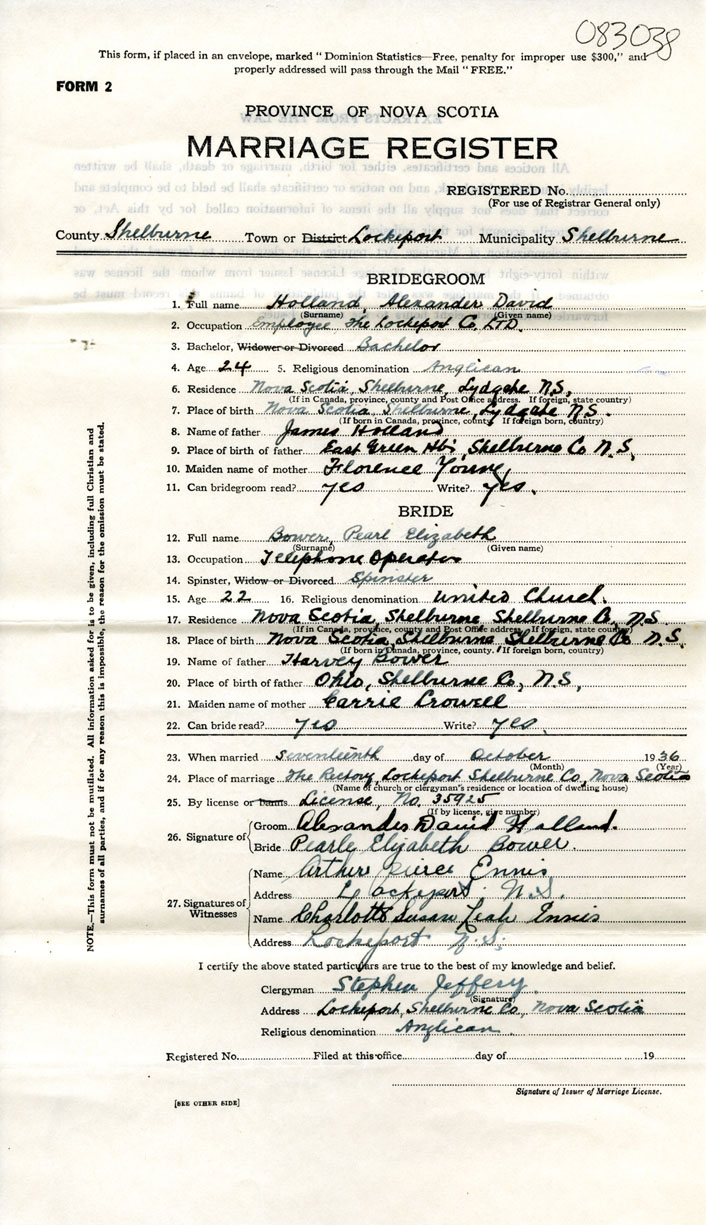 083038
This form, if placed in an envelope, marked "Dominion Statistics—Free, penalty for improper use $300," and
properly addressed will pass through the Mail "FREE."
FORM 2
PROVINCE OF NOVA SCOTIA
MARRIAGE REGISTER
REGISTERED No.
(For use of Registrar General only)
County Shelburne Town or District Lockeport Municipality Shelburne
BRIDEGROOM
1. Full name Holland, Alexander David
(Surname) (Given name)
2. Occupation Employee The Lockeport Co, LTD.
3. Bachelor, Widower or Divorced Bachelor
4. Age 24 5. Religious denomination Anglican
6. Residence Nova Scotia, Shelburne, Lydgate N.S,
(If in Canada, province, county and Post Office address. If foreign, state country)
7. Place of birth Nova Scotia Shelburne, Lydgate N.S.
(If born in Canada, province, county. If foreign born, country)
8. Name of father James Holland
9. Place of birth of father East Green Hbr, Shelburne Co N.S,
10. Maiden name of mother Florence Young,
11. Can bridegroom read? yes Write? yes.
BRIDE
12. Full name Bower, Pearl Elizabeth
(Surname) (Given name)
13. Occupation Telephone Operator
14. Spinster, Widow or Divorced Spinster
15. Age 22 16. Religious denomination United Church.
17. Residence Nova Scotia, Shelburne, Shelburne Co, N.S.
(If in Canada, province, county and Post Office address. If foreign, state country)
18. Place of birth Nova Scotia, Shelburne Shelburne Co N.S.
(If born in Canada, province, county. If foreign born, country)
19. Name of father Harvey Bower
20. Place of birth of father Ohio, Shelburne Co, N.S,
21. Maiden name of mother Carrie Crowell
22. Can bride read? yes Write? yes.
23. When married seventeenth day of October 1936
(Month) (Year)
24. Place of marriage The Rectory, Lockeport Shelburne Co, Nova Scotia
(Name of church or clergyman's residence or location of dwelling house)
25. By license or banns License, No, 35925
(If by license, give number)
26. Signature of Groom Alexander David Holland.
Bride Pearle Elizabeth Bower.
27. Signatures of Witnesses
Name Arthur Pierce Ennis
Address Lockeport. N.S.
Name Charlotte Susan Leah Ennis
Address Lockeport N.S.
I certify the above stated particulars are true to the best of my knowledge and belief.
Clergyman Stephen Jeffery.
(Signature)
Address Lockeport, Shelburne Co, Nova Scotia
Religious denomination Anglican
Registered No. Filed at this office day of 19
Signature of Issuer of Marriage License.
[SEE OTHER SIDE]
NOTE.—This form must not be mutilated. All information asked for is to be given, including full Christian and
surnames of all parties, and if for any reason this is impossible, the reason for the omission must be stated.